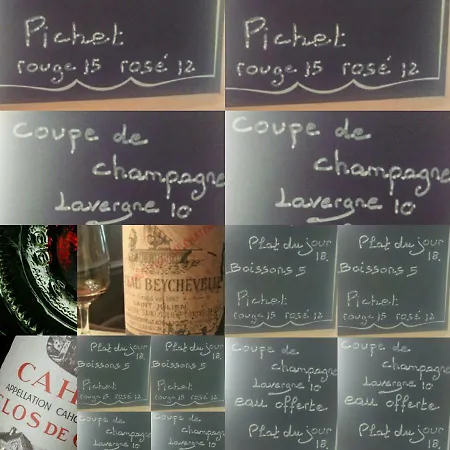 Pichet
rouge 15 rosé 12
Pichet
rouge 15 rosé 12
Coupe de
champagne
Lavergne 10
Coupe de
champagne
Lavergne 10
AU BEYCHEVELLE
SAINT-JULIEN
Plat du jour
18.
Boissons 5
Pichet
rouge 15 rosé 12
Plat du jour
18.
Boissons 5
Pichet
rouge 15 rosé 12
CAH
APPELLATION CAHO
CLOS DE
Plat du jour
18.
Boissons 5
Pichet
rouge 15 rosé 12
Plat du jour
18.
Boissons 5
Pichet
rouge 15 rosé 12
Coupe de
champagne
Lavergne 10
Coupe de
champagne
Lavergne 10
Coupe de
champagne
Lavergne 10
eau offerte
Plat du jour
18.
Coupe de
champagne
Lavergne 10
eau offerte
Plat du jour
18.